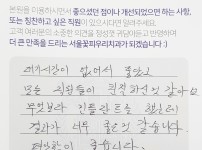 본원을 이용하시면서 좋으셨던 점이나 개선되었으면 하는 사항,
또는 칭찬하고 싶은 직원이 있으시다면 말려주세요.
고객 여러분의 소중한 의견을 정성껏 귀담아듣고 반영하여
더 큰 만족을 드리는 서울꽃피우리치과가 되겠습니다 :)
대기시간이 없어서 좋았고
모든 직원들이 친절하신 것 같아요
무엇보다 임플란트를 했는데
결과가 너무 좋은 것 같습니다.